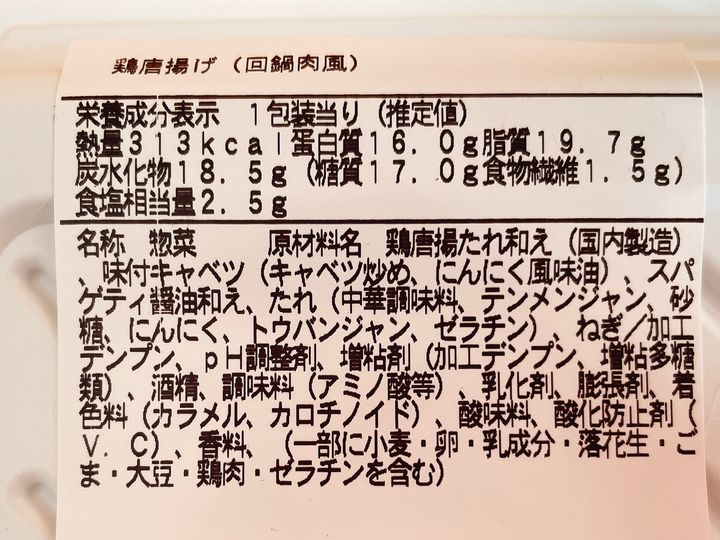 鶏唐揚げ（回鍋肉風）
栄養成分表示　１包装当り（推定値）
熱量３１３ｋｃａｌ蛋白質１６．０ｇ脂質１９．７ｇ
炭水化物１８．５ｇ（糖質１７．０ｇ食物繊維１．５ｇ）
食塩相当量２．５ｇ
名称　惣菜　　　原材料名　鶏唐揚たれ和え（国内製造）
、味付キャベツ（キャベツ炒め、にんにく風味油）、スパ
ゲティ醤油和え、たれ（中華調味料、テンメンジャン、砂
糖、にんにく、トウバンジャン、ゼラチン）、ねぎ／加工
デンプン、ｐＨ調整剤、増粘剤（加工デンプン、増粘多糖
類）、酒精、調味料（アミノ酸等）、乳化剤、膨張剤、着
色料（カラメル、カロチノイド）、酸味料、酸化防止剤（
Ｖ．Ｃ）、香料、（一部に小麦・卵・乳成分・落花生・ご
ま・大豆・鶏肉・ゼラチンを含む）